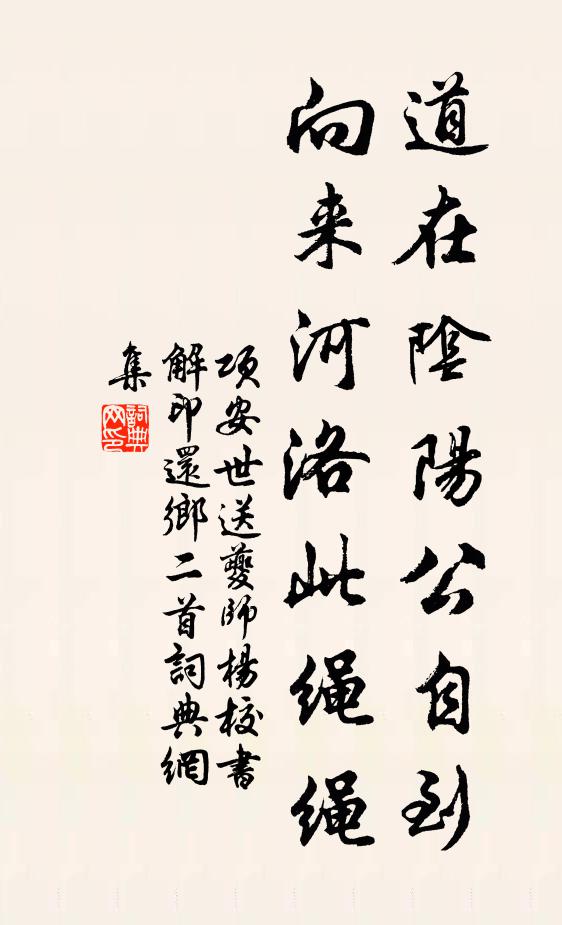 道在陰陽公自到
向来河洛此绳绳
项安世送夔师杨校書
解印還鄉二首詞典網
集
詞典网印